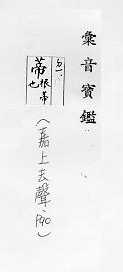 彙音寶鑑
ㄉㄧ
蒂 根蒂也
(嘉上去聲,P90)